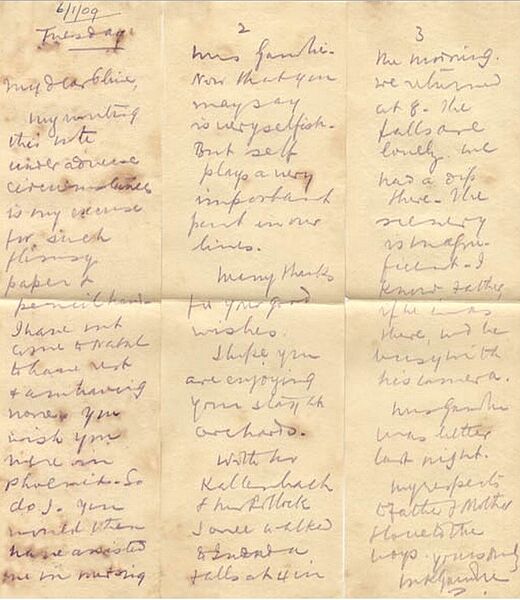 6/1/09
Tuesday
My dear Olive,
My writing
this note
under adverse
circumstances
is my excuse
for such
flimsy
paper &
pencil hand.
I have not
come to Natal
to have rest
& am having
none. You
wish you
were in
Phoenix. So
do I. You
would then
have assisted
me in nursing
2
Mrs Gandhi.
Now that you
may say
is very selfish.
But self
plays a very
important
part in our
lives.
Many thanks
for your good
wishes.
I hope you
are enjoying
your stay at
orchards.
With Mr
Kallenbach
& Mr Pollock
I once walked
to Inanda
falls at 4 in
3
the morning.
We returned
at 8. The
falls are
lovely. We
had a dip
there. The
scenery
is magni-
ficent. I
know father,
if he was
there, will be
busy with
his camera.
Mrs Gandhi
was better
last night.
My respects
to father & Mother
& love to the
boys. Yours sincly
MK Gandhi